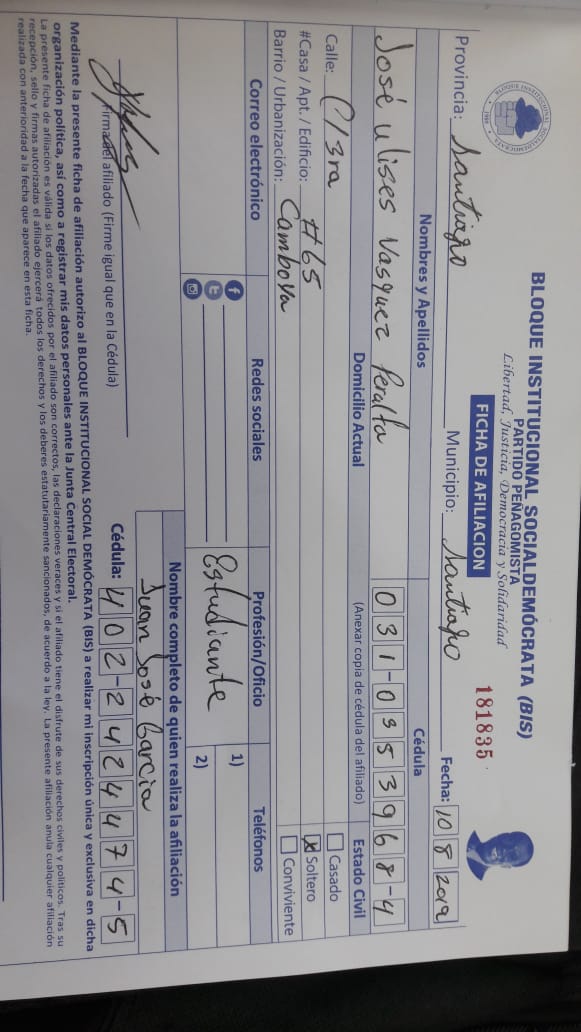 BLOQUE INSTITUCIONAL SOCIALDEMÓCRATA (BIS)
PARTIDO PEÑAGOMISTA
Libertad, Justicia, Democracia y Solidaridad
FICHA DE AFILIACION
181835
Provincia: Santiago Municipio: Santiago Fecha: 10 8 2019
Nombres y Apellidos Cédula
José Ulises Vasquez Peralta 031-0353968-4
Domicilio Actual (Anexar copia de cédula del afiliado) Estado Civil
Calle: C/3ra Casado
#Casa / Apt. / Edificio: #65 x Soltero
Barrio / Urbanización: Camboya Conviviente
Correo electrónico Redes sociales Profesión/Oficio Teléfonos
Estudiante 1)
2)
Nombre completo de quien realiza la afiliación
Juan José Garcia
Firma del afiliado (Firme igual que en la Cédula) Cédula: 402-2424474-5
Mediante la presente ficha de afiliación autorizo al BLOQUE INSTITUCIONAL SOCIAL DEMÓCRATA (BIS) a realizar mi inscripción única y exclusiva en dicha
organización política, así como a registrar mis datos personales ante la Junta Central Electoral.
La presente ficha de afiliación es válida si los datos ofrecidos por el afiliado son correctos, las declaraciones veraces y si el afiliado tiene el disfrute de sus derechos civiles y políticos. Tras su
recepción, sello y firmas autorizadas el afiliado ejercerá todos los derechos y los deberes estatutariamente sancionados, de acuerdo a la ley. La presente afiliación anula cualquier afiliación
realizada con anterioridad a la fecha que aparece en esta ficha.